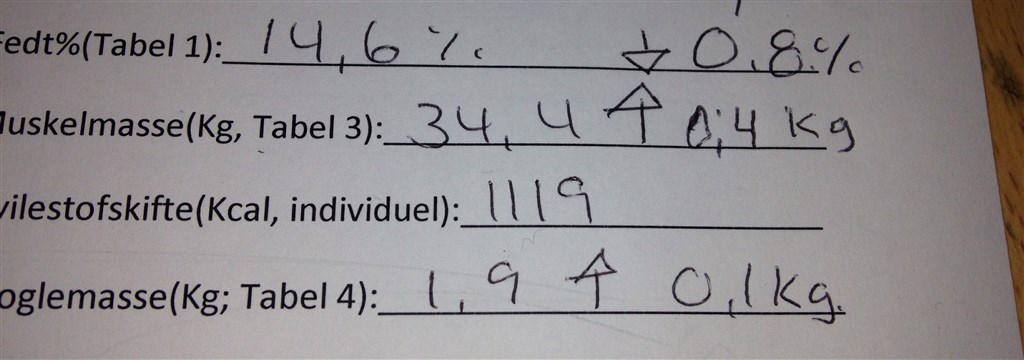 Fedt%(Tabel 1): 14,6 % ↓ 0,8%
Muskelmasse(Kg, Tabel 3): 34,4 ↑ 0,4 Kg
vilestofskifte(Kcal, individuel): 1119
oglemasse(Kg; Tabel 4): 1,9 ↑ 0,1 Kg.